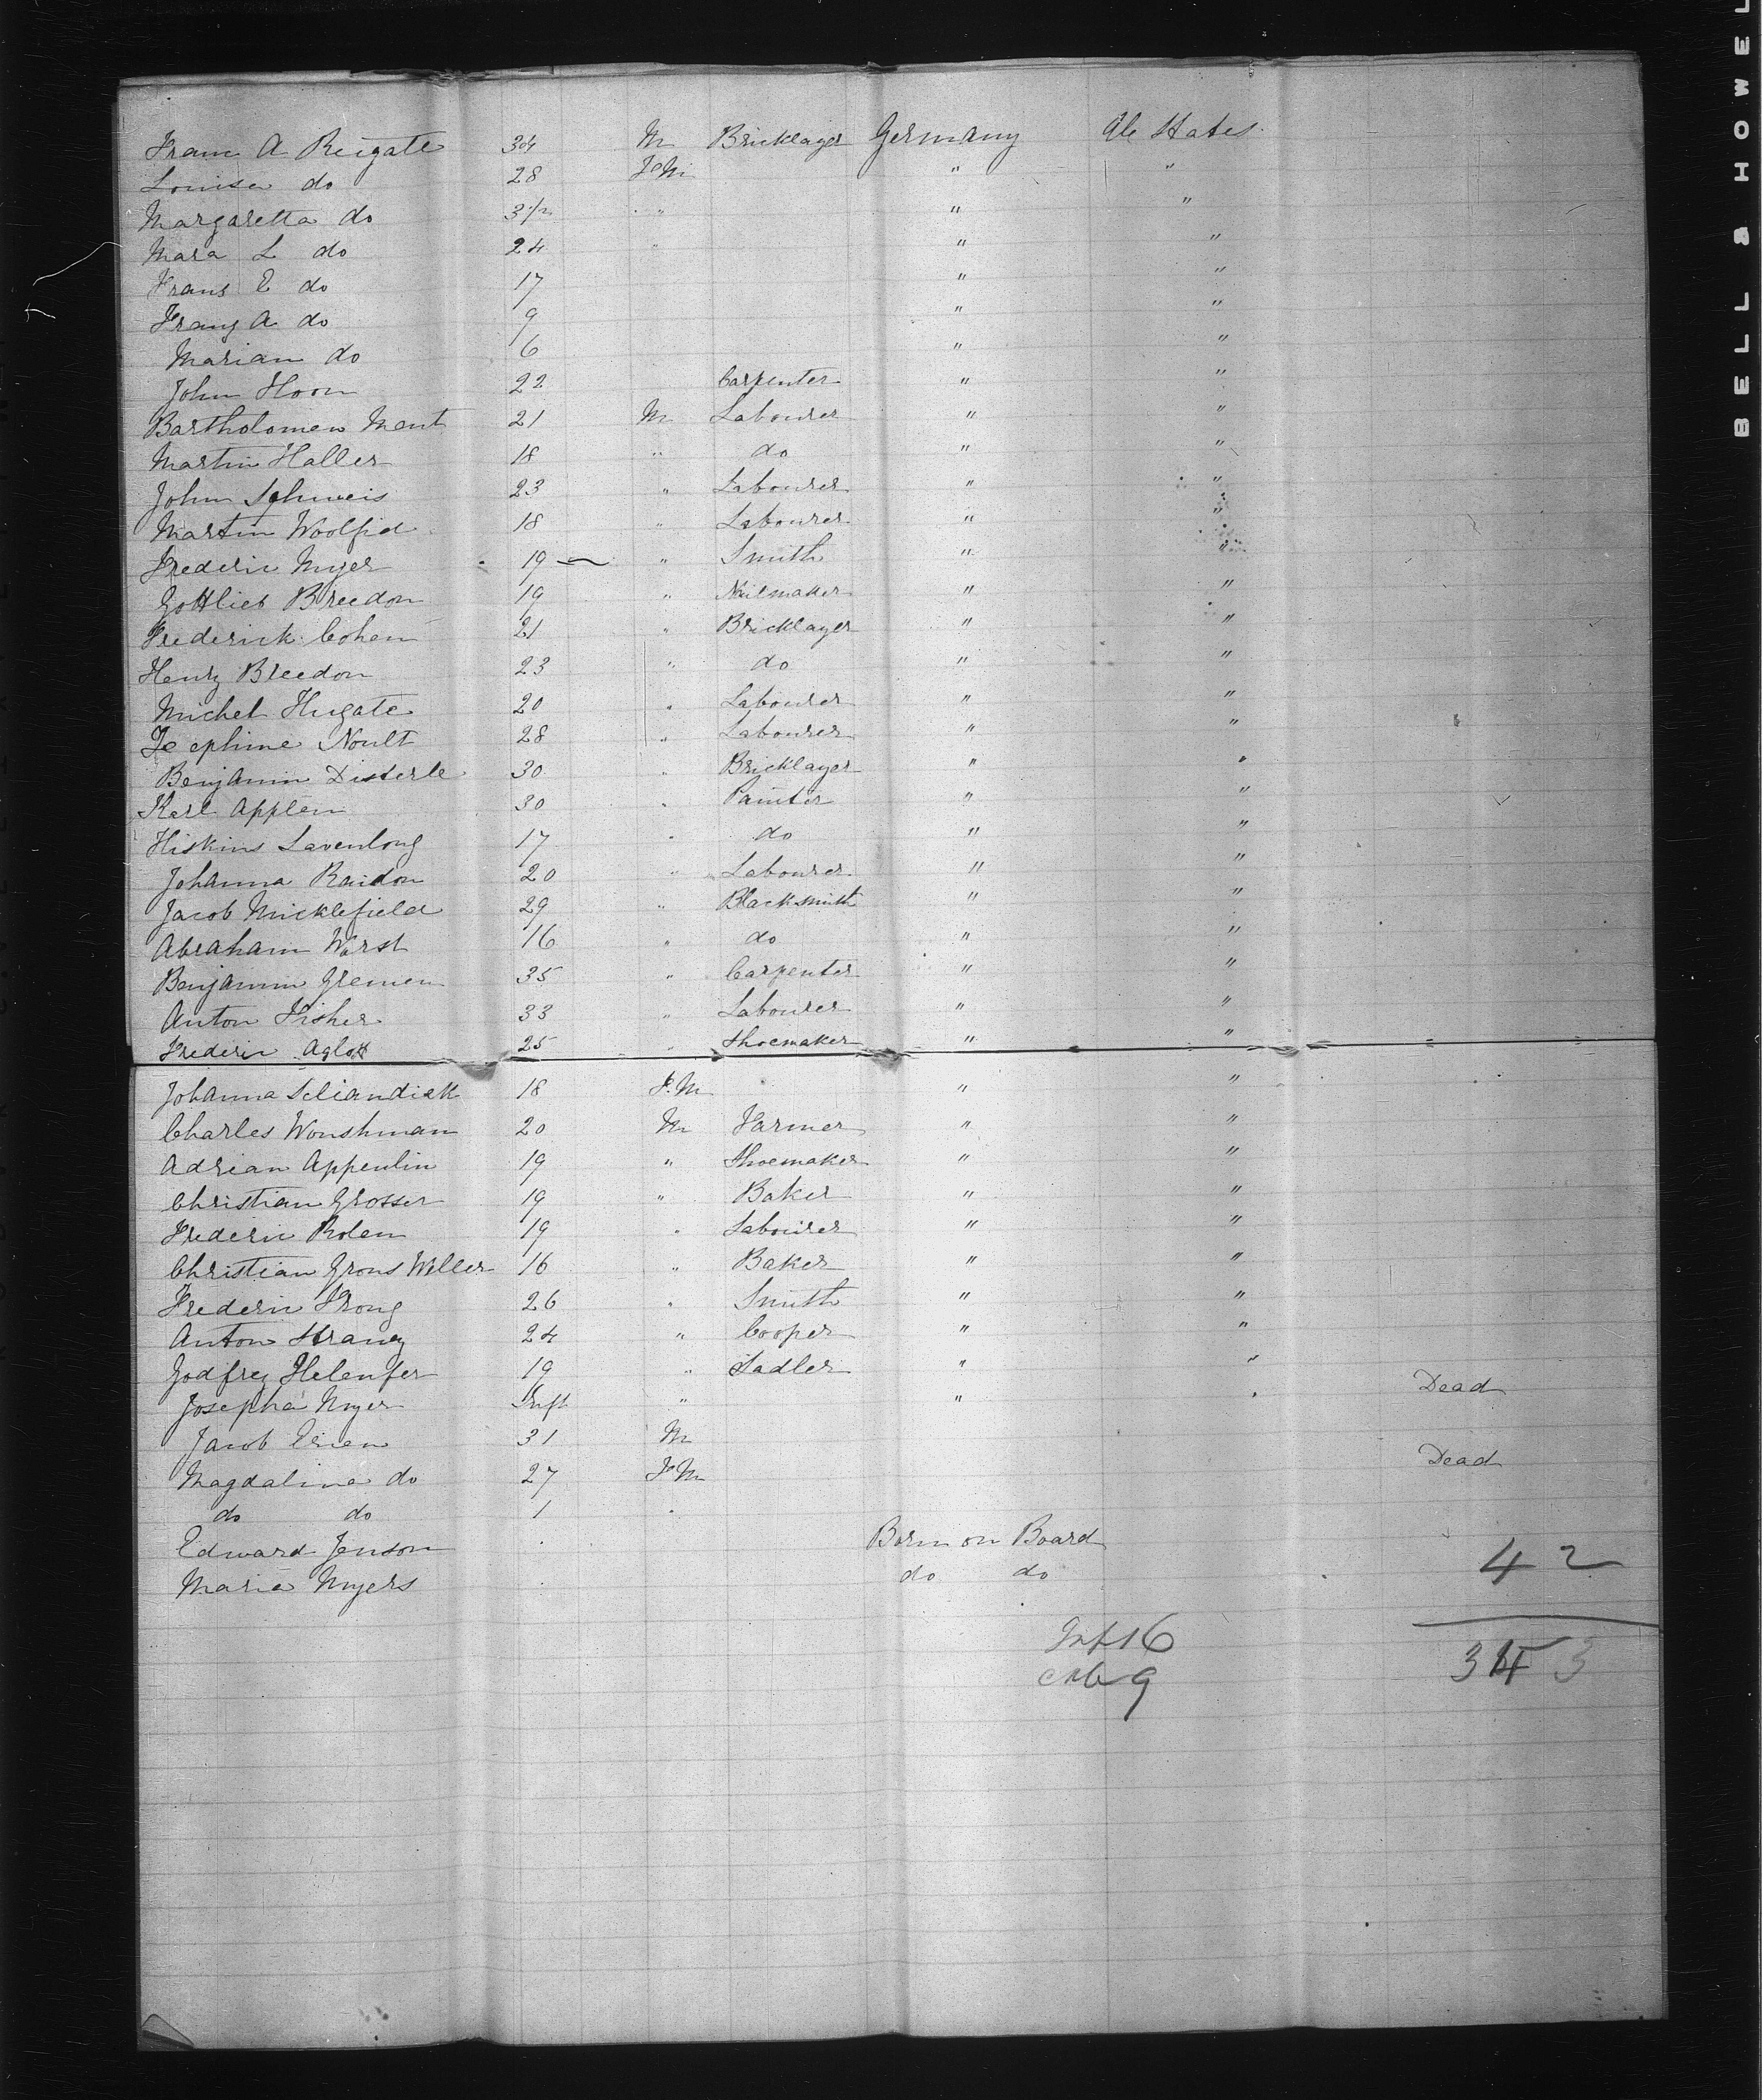 Fram A Reigate 34 M Bricklayer Germany Ue States
Louisa do 28 FM " "
Margaretta do 3 1/2 " " "
Mara L do 24 " " "
Frans E do 17 " "
Franz A do 9 " "
Marian do 6 " "
John Horn 22 Carpenter " "
Bartholomew Ment 21 M Labourer " "
Martin Haller 18 " do " "
John Schweis 23 " Labourer " "
Martin Woolfid 18 " Labourer " "
Frederic Myer 19 " Smith " "
Gottlieb Breedon 19 " Nailmaker " "
Frederick Cohen 21 " Bricklayer " "
Henry Breedon 23 " do " "
Michel Hugate 20 " Labourer " "
Josephine Noult 28 " Labourer " "
Benjamin Disterle 30 " Bricklayer " "
Karl Applen 30 " Painter " "
Hiskins Lavenlong 17 " do " "
Johanna Raidon 20 " Labourer " "
Jacob Micklefield 29 " Blacksmith " "
Abraham Worst 16 " do " "
Benjamin Gremen 35 " Carpenter " "
Anton Fisher 33 " Labourer " "
Frederic Aglok 25 " Shoemaker " "
Johanna Seliandiek 18 F.M " "
Charles Wonshman 20 M Farmer " "
Adrian Appenlin 19 " Shoemaker " "
Christian Grosser 19 " Baker " "
Frederic Rolen 19 " Labourer " "
Christian Grons Weller 16 " Baker " "
Frederic Strong 26 " Smith " "
Anton Straney 24 " Cooper " "
Godfrey Helenfer 19 " Sadler " "
Josepha Myer Inft " " " Dead
Jacob Erien 31 M
Magdalina do 27 FM Dead
do do 1 "
Edward Jenson Born on Board
Maria Myers do do
42
Inf 16
Ch 9 343
BELL & HOWEL